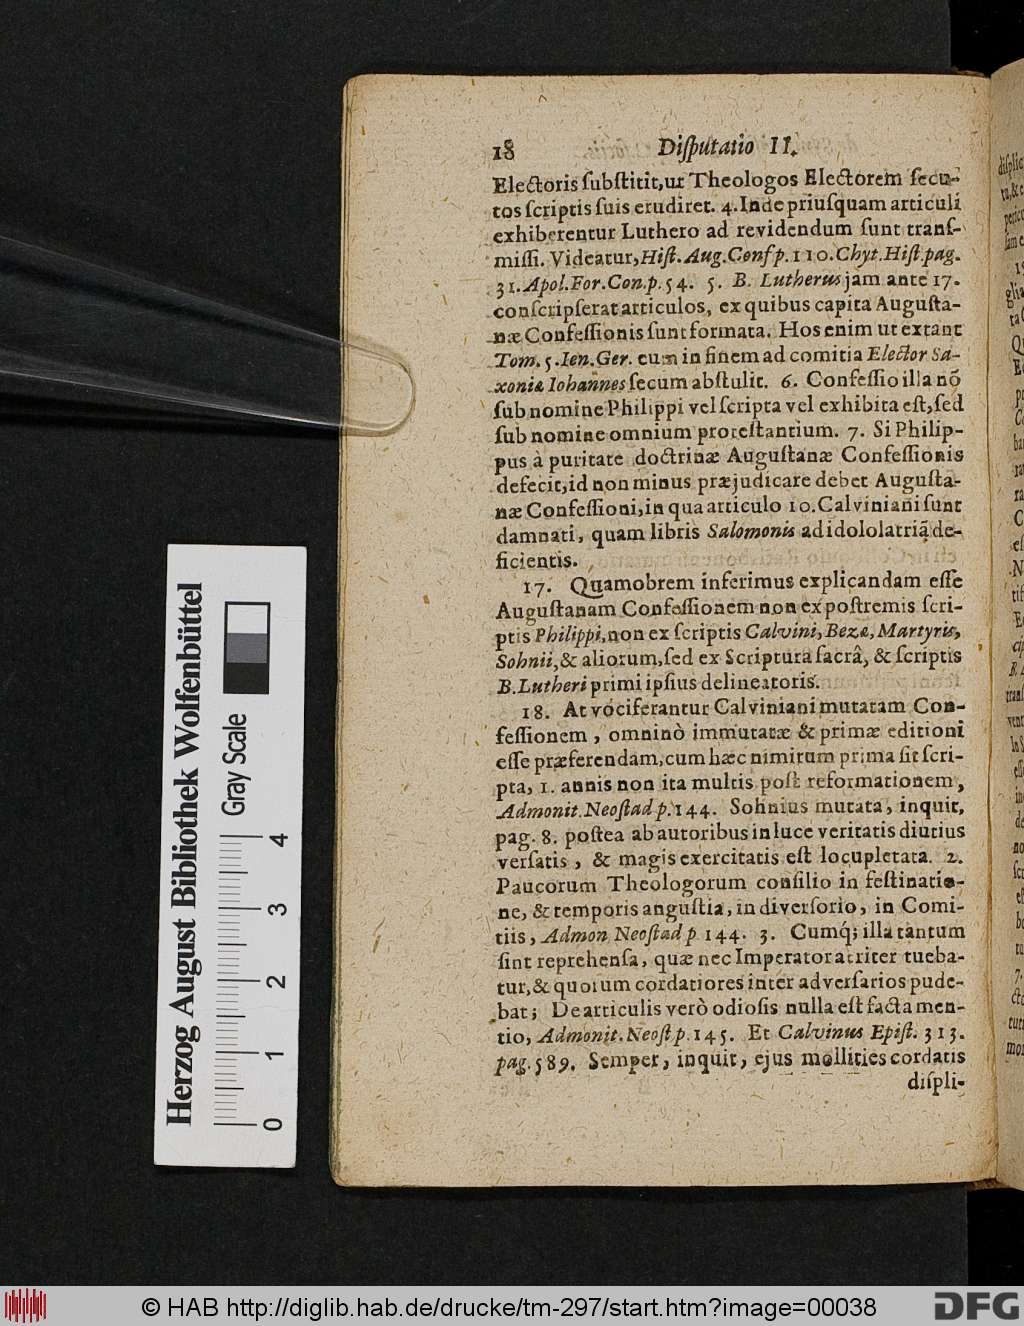 18 Disputatio II.
Electoris substitit, ut Theologos Electorem secu-
tos scriptis suis erudiret. 4. Inde priusquam articuli
exhiberentur Luthero ad revidendum sunt trans-
missi. Videatur, Hist. Aug. Conf p. 110. Chyt. Hist. pag.
31. Apol. For. Con. p. 54. 5. B. Lutherus jam ante 17.
conscripserat articulos, ex quibus capita Augusta-
næ Confessionis sunt formata. Hos enim ut extant
Tom. 5. Ien. Ger. eum in finem ad comitia Elector Sa-
xoniæ Iohannes secum abstulit. 6. Confessio illa nō
sub nomine Philippi vel scripta vel exhibita est, sed
sub nomine omnium protestantium. 7. Si Philip-
pus à puritate doctrinæ Augustanæ Confessionis
defecit, id non minus præjudicare debet Augusta-
næ Confessioni, in qua articulo 10. Calviniani sunt
damnati, quam libris Salomonis ad idololatriā de-
ficientis.
17. Quamobrem inferimus explicandam esse
Augustanam Confessionem non ex postremis scri-
ptis Philippi, non ex scriptis Calvini, Bezæ, Martyris,
Sohnii, & aliorum, sed ex Scriptura sacrâ, & scriptis
B. Lutheri primi ipsius delineatoris.
18. At vociferantur Calviniani mutatam Con-
fessionem, omninò immutatæ & primæ editioni
esse præferendam, cum hæc nimirum prima sit scri-
pta, 1. annis non ita multis post reformationem,
Admonit. Neostad p. 144. Sohnius mutata, inquit,
pag. 8. postea ab autoribus in luce veritatis diutius
versatis, & magis exercitatis est locupletata. 2.
Paucorum Theologorum consilio in festinatio-
ne, & temporis angustia, in diversorio, in Comi-
tiis, Admon Neostad p 144. 3. Cumq́; illa tantum
sint reprehensa, quæ nec Imperator atriter tueba-
tur, & quorum cordatiores inter adversarios pude-
bat; De articulis verò odiosis nulla est facta men-
tio, Admonit. Neost p. 145. Et Calvinus Epist. 313.
pag. 589. Semper, inquit, ejus mollities cordatis
displi-
Herzog August Bibliothek Wolfenbüttel
Gray Scale
0 1 2 3 4
© HAB http://diglib.hab.de/drucke/tm-297/start.htm?image=00038
DFG